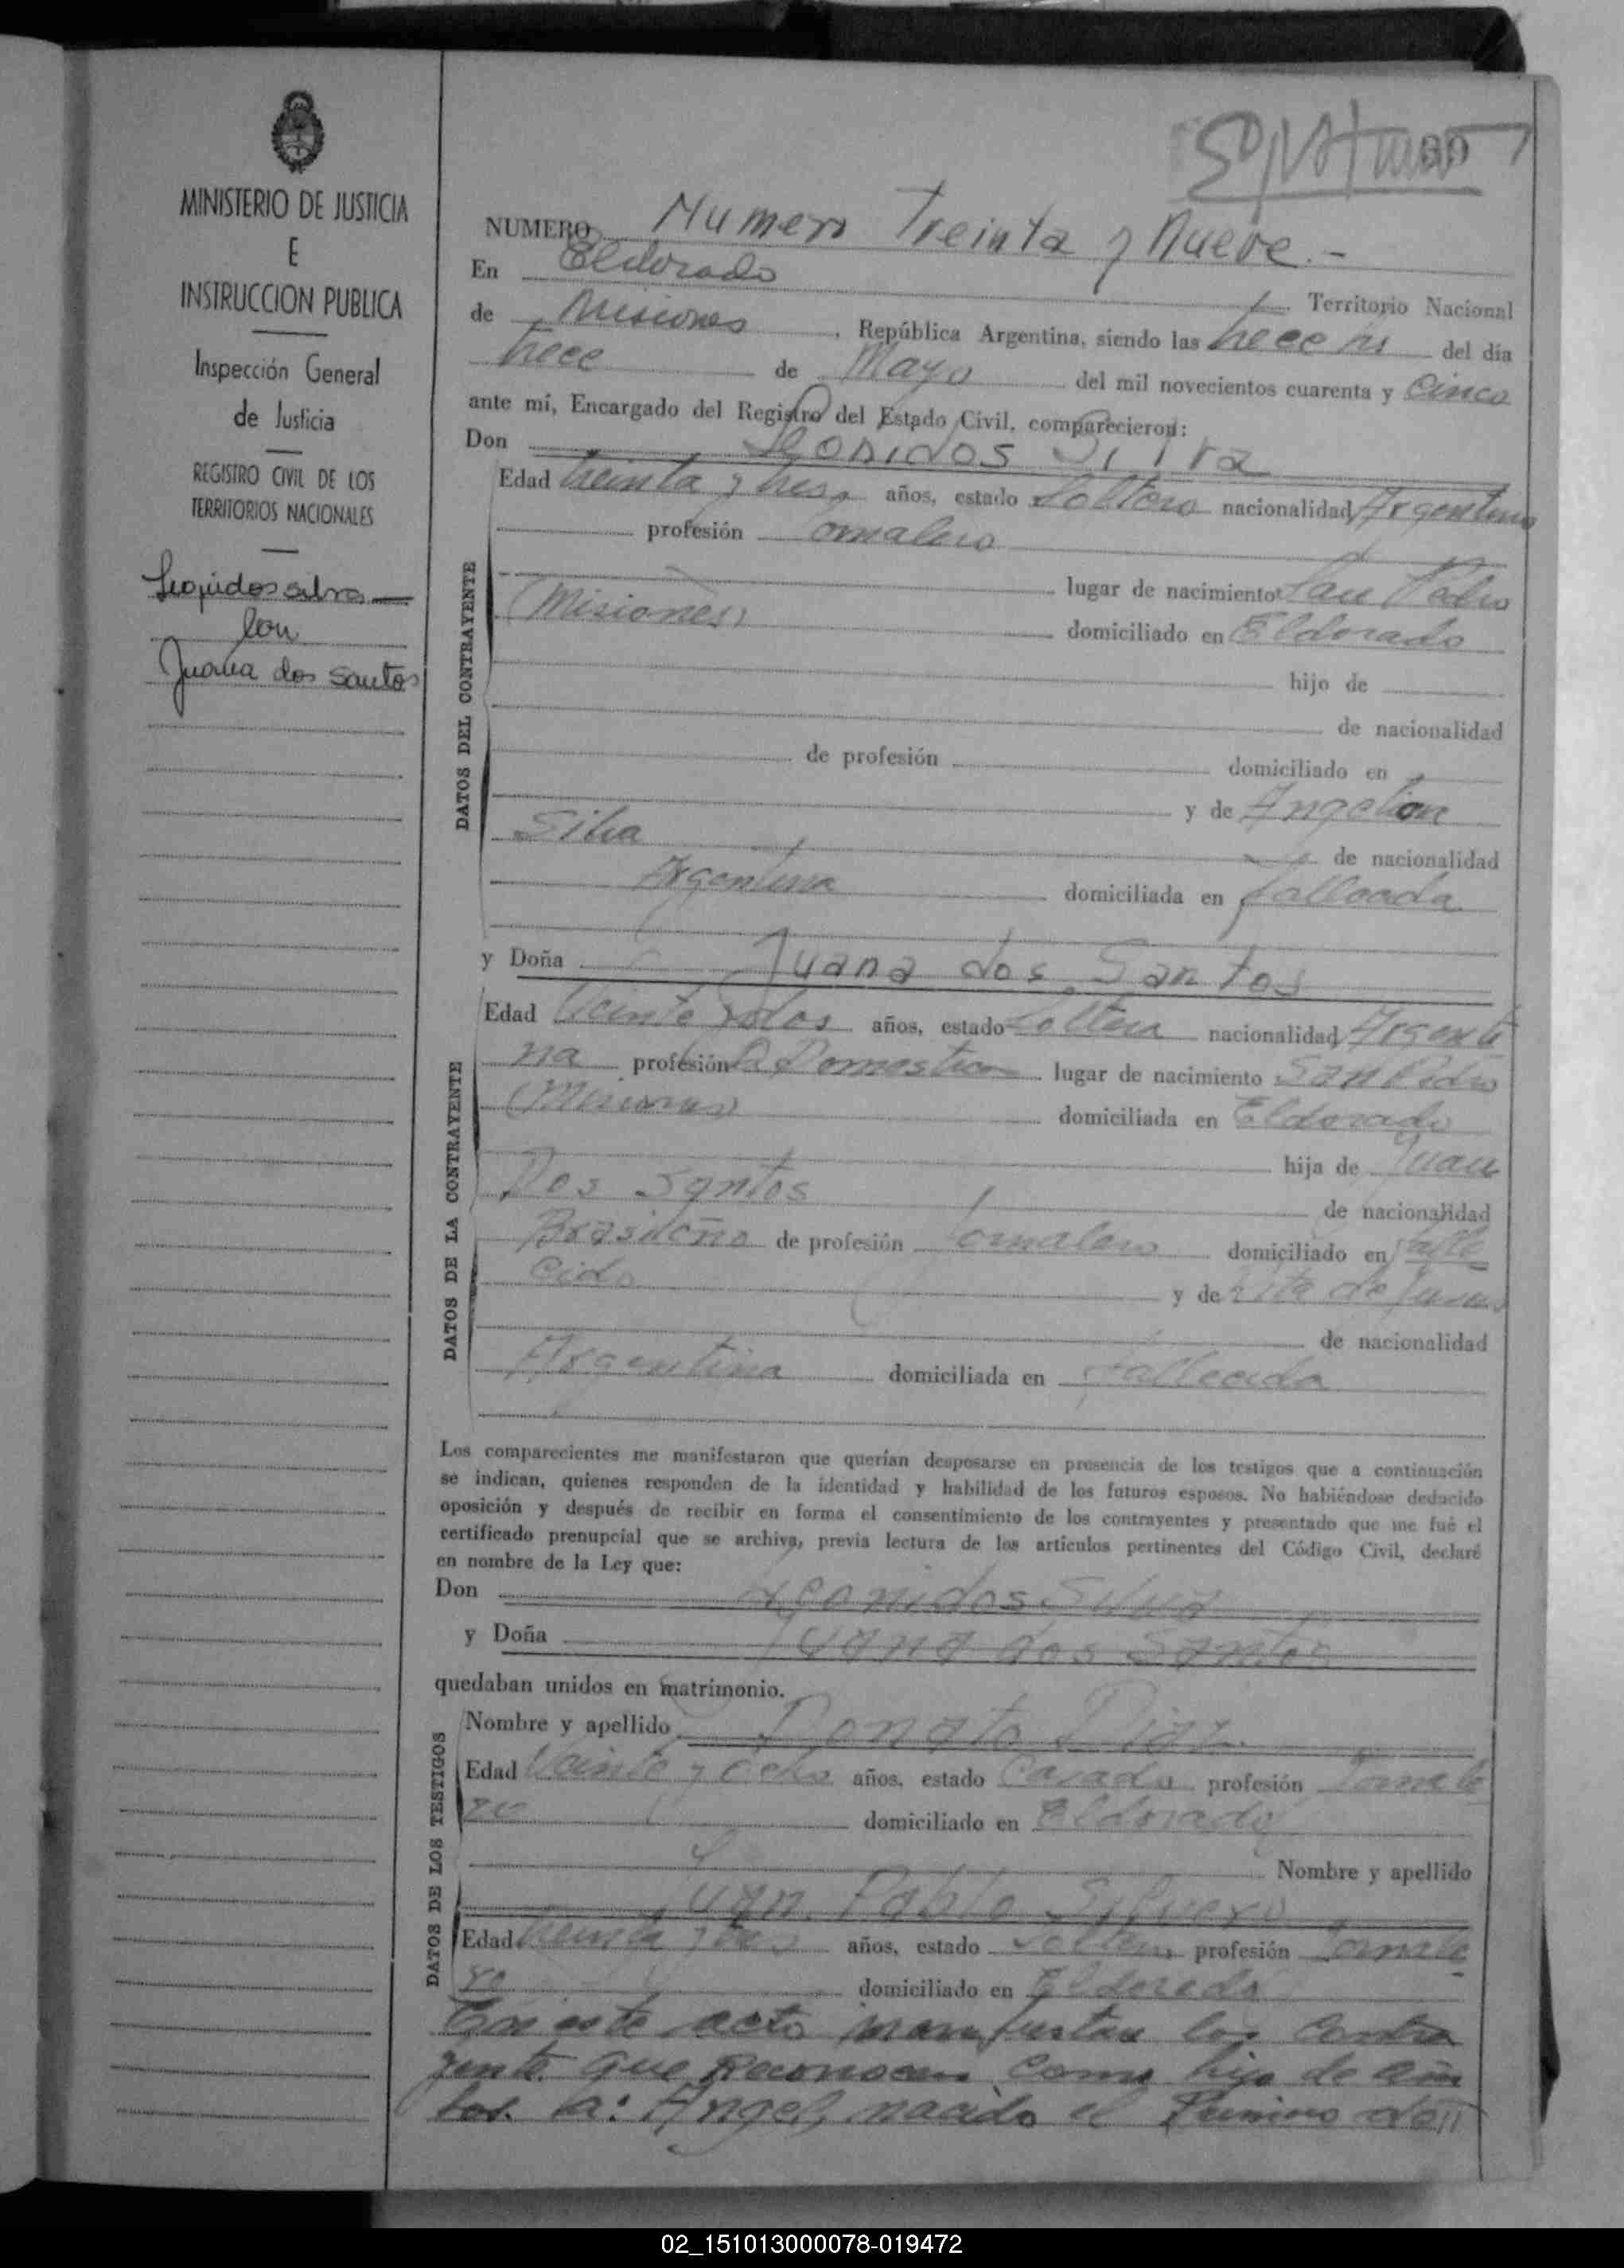 MINISTERIO DE JUSTICIA
E
INSTRUCCION PUBLICA
Inspección General
de Justicia
REGISTRO CIVIL DE LOS
TERRITORIOS NACIONALES
Leonidos Silva
Con
Juana dos Santos
39
NUMERO Numero Treinta y Nueve.-
En Eldorado Territorio Nacional
de Misiones, República Argentina, siendo las trece hs del día
trece de Mayo del mil novecientos cuarenta y Cinco
ante mí, Encargado del Registro del Estado Civil, comparecieron:
Don Leonidos Silva
DATOS DEL CONTRAYENTE
Edad treinta y tres, años, estado Soltero nacionalidad Argentino
profesión Jornalero
lugar de nacimiento San Pedro
(Misiones) domiciliado en Eldorado
hijo de
de nacionalidad
de profesión domiciliado en
y de Angelina
Silva de nacionalidad
Argentina domiciliada en fallecida
y Doña Juana dos Santos
DATOS DE LA CONTRAYENTE
Edad Veinte y dos años, estado Soltera nacionalidad Argenti
na profesión Q Domesticos lugar de nacimiento San Pedro
(Misiones) domiciliada en Eldorado
hija de Juan
Dos Santos de nacionalidad
Brasileño de profesión Jornalero domiciliado en falle
cido y de Rita de Jesus
de nacionalidad
Argentina domiciliada en fallecida
Los comparecientes me manifestaron que querían desposarse en presencia de los testigos que a continuación
se indican, quienes responden de la identidad y habilidad de los futuros esposos. No habiéndose deducido
oposición y después de recibir en forma el consentimiento de los contrayentes y presentado que me fué el
certificado prenupcial que se archiva, previa lectura de los artículos pertinentes del Código Civil, declaré
en nombre de la Ley que:
Don Leonidos Silva
y Doña Juana dos Santos
quedaban unidos en matrimonio.
DATOS DE LOS TESTIGOS
Nombre y apellido Donato Diaz
Edad Veinte y ocho años, estado Casado profesión Jornale
ro domiciliado en Eldorado
Nombre y apellido
Juan Pablo Silvero
Edad treinta y tres años, estado Soltero profesión Jornale
ro domiciliado en Eldorado
En este acto manifiestan los Contra
yente que Reconocen Como hijo de am
bos. a: Angel, nacido el Primero de
02_151013000078-019472